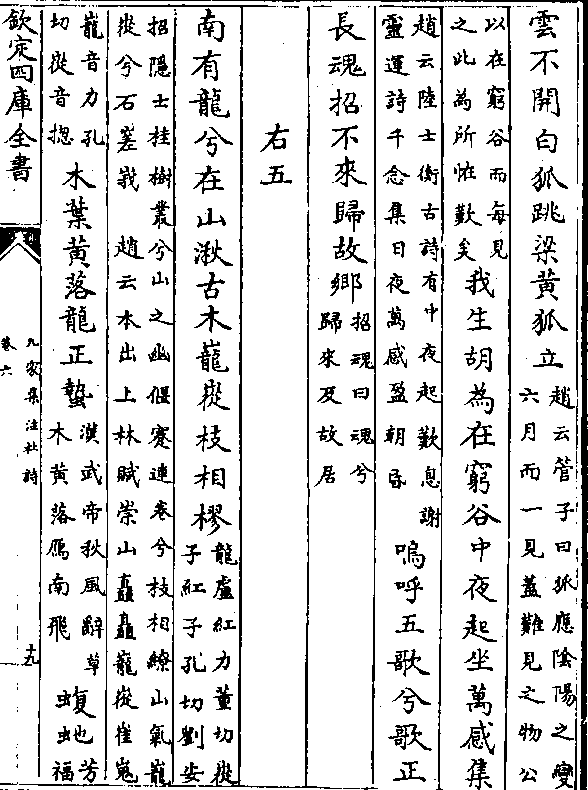 雲不開白狐跳梁黃狐立趙云管子曰狐應陰陽之變六月而一見蓋難見之物公
以在窮谷而每見之此為所怪歎矣我生胡為在窮谷中夜起坐萬感集
趙云陸士衡古詩有中夜起歎息謝靈運詩千念集日夜萬感盈朝昏嗚呼五歌兮歌正
長魂招不來歸故鄉招魂曰魂兮歸來反故居
右五
南有龍兮在山湫古木巃嵸枝相樛龍盧紅力董切嵸子紅子孔切劉安
招隱士桂樹叢兮山之幽偃蹇連卷兮枝相繚山氣巃嵸兮石嵳峩趙云本出上林賦崇山矗矗巃嵸崔嵬
巃音力孔切嵸音揔木葉黃落龍正蟄漢武帝秋風辭草木黃落鴈南飛蝮虵芳福
欽定四庫全書
九家集注杜詩
卷六
十九